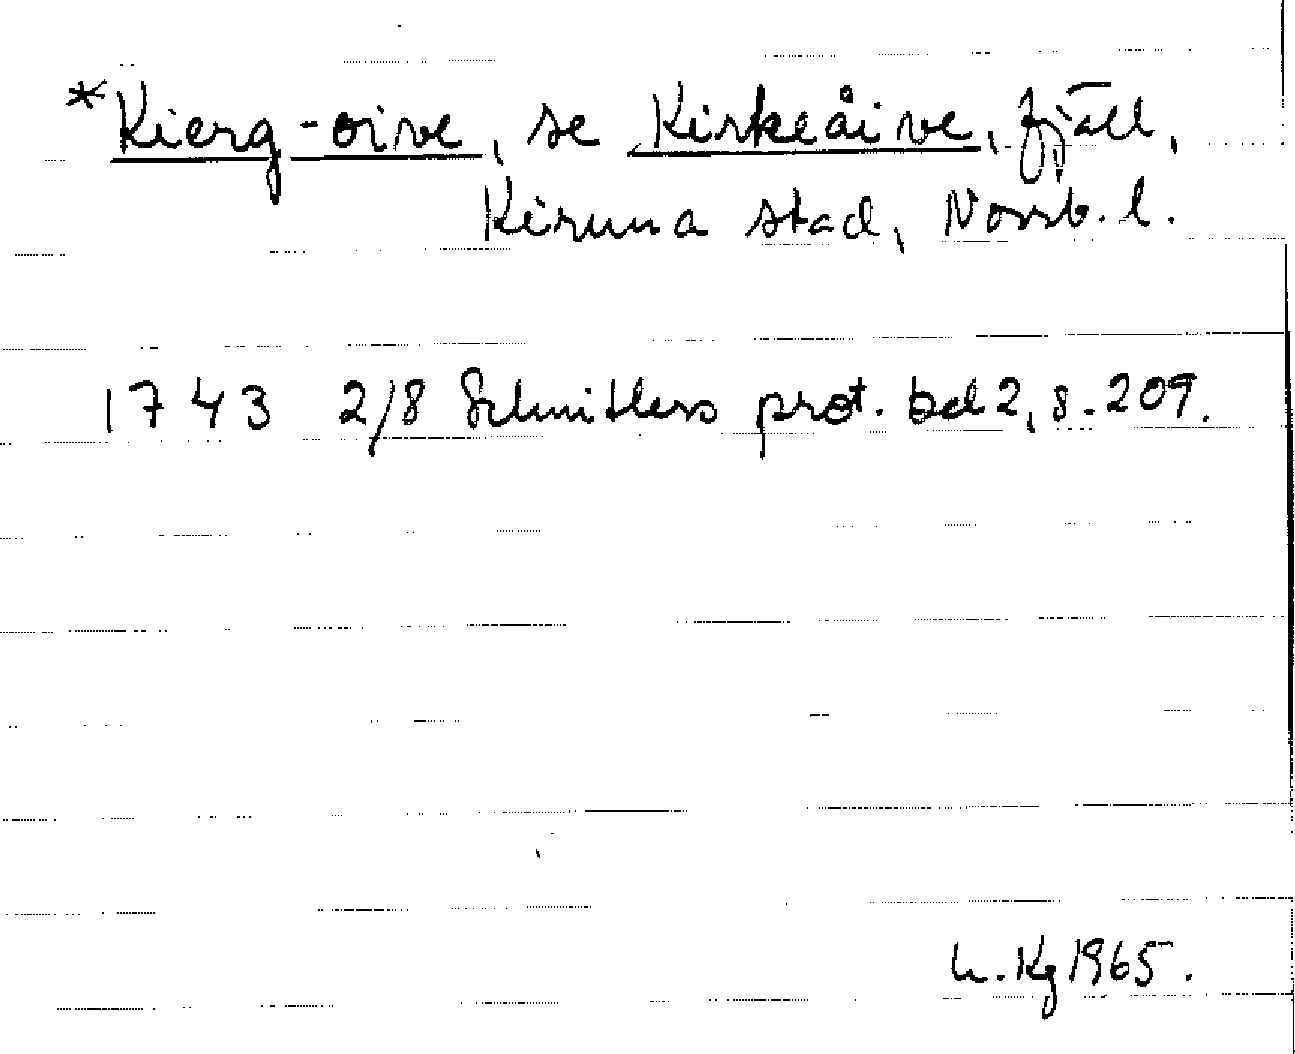 *Kierg-oive, se Kirkeåive, fjäll,
Kiruna stad, Norrb. l.
1743 2/8 Schnitlers prot. bd 2, s. 209.
h. Kg 1965.